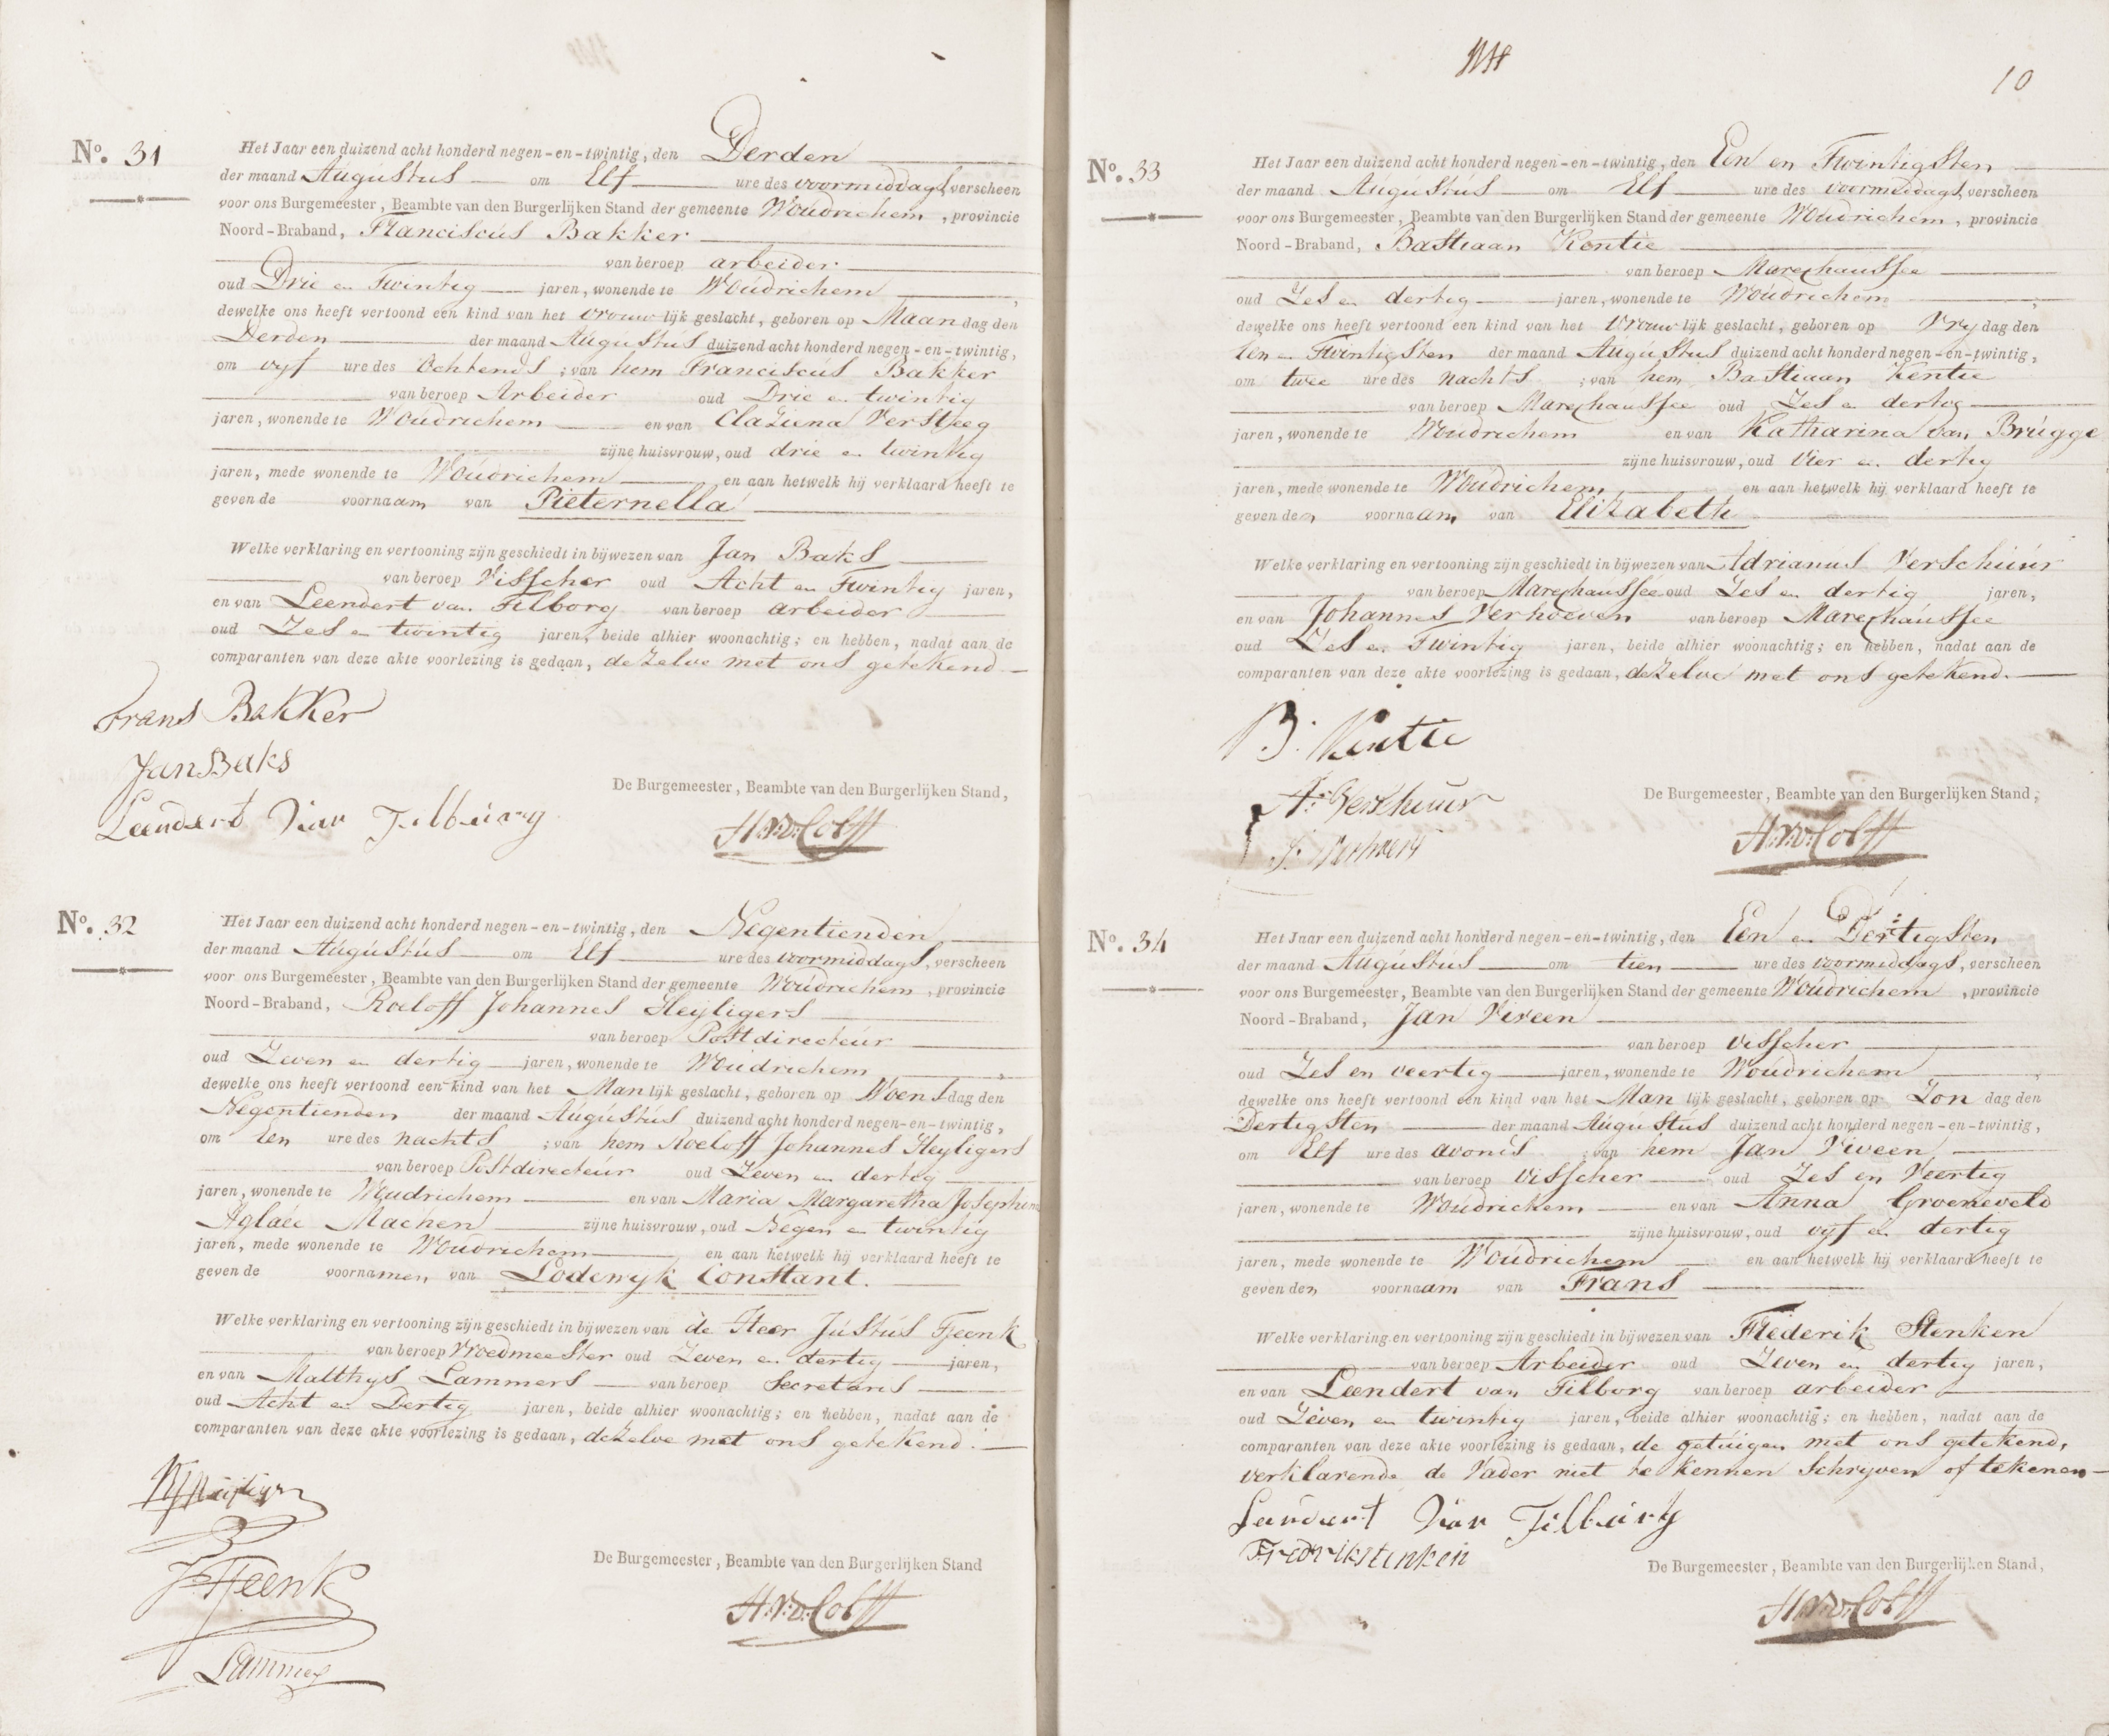 No. 31
Het Jaar een duizend acht honderd negen-en-twintig, den Derden
der maand Augustus om Elf ure des voormiddags, verscheen
voor ons Burgemeester, Beambte van den Burgerlijken Stand der gemeente Woudrichem, provincie
Noord-Braband, Franciscus Bakker
van beroep arbeider
oud Drie en Twintig jaren, wonende te Woudrichem,
dewelke ons heeft vertoond een kind van het vrouwlijk geslacht, geboren op Maandag den
Derden der maand Augustus duizend acht honderd negen-en-twintig,
om vyf ure des Ochtends ; van hem Franciscus Bakker
van beroep Arbeider oud Drie en twintig
jaren, wonende te Woudrichem en van Claziena Versteeg
zijne huisvrouw, oud drie en twintig
jaren, mede wonende te Woudrichem en aan hetwelk hij verklaard heeft te
geven de voornaam van Pieternella
Welke verklaring en vertooning zijn geschiedt in bijwezen van Jan Baks
van beroep Visscher oud Acht en Twintig jaren,
en van Leendert van Tilborg van beroep arbeider
oud Zes en twintig jaren, beide alhier woonachtig; en hebben, nadat aan de
comparanten van deze akte voorlezing is gedaan, dezelve met ons getekend
Frans Bakker
Jan Baks
Leendert van Tilburg
De Burgemeester, Beambte van den Burgerlijken Stand,
No. 32
Het Jaar een duizend acht honderd negen-en-twintig, den Negentienden
der maand Augustus om Elf ure des voormiddags, verscheen
voor ons Burgemeester, Beambte van den Burgerlijken Stand der gemeente Woudrichem, provincie
Noord-Braband, Roeloff Johannes Heyligers
van beroep Postdirecteur
oud Zeven en dertig jaren, wonende te Woudrichem,
dewelke ons heeft vertoond een kind van het Manlijk geslacht, geboren op Woensdag den
Negentienden der maand Augustus duizend acht honderd negen-en-twintig,
om Een ure des nachts ; van hem Roeloff Johannes Heyligers
van beroep Postdirecteur oud Zeven en dertig
jaren, wonende te Woudrichem en van Maria Margaretha Josephina
Aglaée Machen zijne huisvrouw, oud Negen en twintig
jaren, mede wonende te Woudrichem en aan hetwelk hij verklaard heeft te
geven de voornamen van Lodewyk Constant.
Welke verklaring en vertooning zijn geschiedt in bijwezen van de Heer Justus Tjeenk
van beroep Vroedmeester oud Zeven en dertig jaren,
en van Matthys Lammers van beroep Secretaris
oud Acht en Dertig jaren, beide alhier woonachtig; en hebben, nadat aan de
comparanten van deze akte voorlezing is gedaan, dezelve met ons getekend.
J Tjeenk
Lammers
De Burgemeester, Beambte van den Burgerlijken Stand
10
No. 33
Het Jaar een duizend acht honderd negen-en-twintig, den Een en Twintigsten
der maand Augustus om Elf ure des voormiddags, verscheen
voor ons Burgemeester, Beambte van den Burgerlijken Stand der gemeente Woudrichem, provincie
Noord-Braband, Bastiaan Kentie
van beroep Marechaussee
oud Zes en dertig jaren, wonende te Woudrichem,
dewelke ons heeft vertoond een kind van het Vrouwlijk geslacht, geboren op Vrydag den
Een en Twintigsten der maand Augustus duizend acht honderd negen-en-twintig,
om twee ure des nachts ; van hem Bastiaan Kentie
van beroep Marechaussee oud Zes en dertig
jaren, wonende te Woudrichem en van Katharina van Brugge
zijne huisvrouw, oud Vier en dertig
jaren, mede wonende te Woudrichem en aan hetwelk hij verklaard heeft te
geven den voornaam van Elizabeth
Welke verklaring en vertooning zijn geschiedt in bijwezen van Adrianus Verschuur
van beroep Marechaussee oud Zes en dertig jaren,
en van Johannes Verhoeven van beroep Marechaussee
oud Zes en Twintig jaren, beide alhier woonachtig; en hebben, nadat aan de
comparanten van deze akte voorlezing is gedaan, dezelve met ons getekend.
B. Kentie
A: Verscheuur
De Burgemeester, Beambte van den Burgerlijken Stand,
No. 34
Het Jaar een duizend acht honderd negen-en-twintig, den Een en Dertigsten
der maand Augustus om tien ure des voormiddags, verscheen
voor ons Burgemeester, Beambte van den Burgerlijken Stand der gemeente Woudrichem, provincie
Noord-Braband, Jan Viveen
van beroep visscher
oud Zes en veertig jaren, wonende te Woudrichem
dewelke ons heeft vertoond een kind van het Manlijk geslacht, geboren op Zondag den
Dertigsten der maand Augustus duizend acht honderd negen-en-twintig,
om Elf ure des avonds ; van hem Jan Viveen
van beroep Visscher oud Zes en Veertig
jaren, wonende te Woudrichem en van Anna Groeneveld
zijne huisvrouw, oud vyf en dertig
jaren, mede wonende te Woudrichem en aan hetwelk hij verklaard heeft te
geven den voornaam van Frans
Welke verklaring en vertooning zijn geschiedt in bijwezen van Frederik Stenken
van beroep Arbeider oud Zeven en dertig jaren,
en van Leendert van Tilborg van beroep arbeider
oud Zeven en twintig jaren, beide alhier woonachtig; en hebben, nadat aan de
comparanten van deze akte voorlezing is gedaan, de getuigen met ons getekend,
verklarende de Vader niet te kennen Schryven of tekenen
Leendert van Tilburg
Fredrikstenken
De Burgemeester, Beambte van den Burgerlijken Stand,